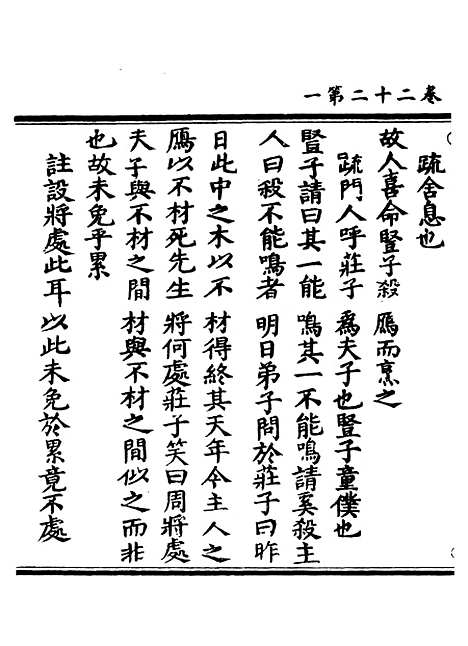 卷二十二第一
疏舍息也
故人喜命豎子殺鴈而烹之
疏門人呼莊子爲夫子也豎子童僕也
豎子請曰其一能鳴其一不能鳴請奚殺主
人曰殺不能鳴者明日弟子問於莊子曰昨
日此中之木以不材得終其天年今主人之
鴈以不材死先生將何處莊子笑曰周將處
夫子與不材之間材與不材之間似之而非
也故未免乎累
註設將處此耳以此未免於累竟不處